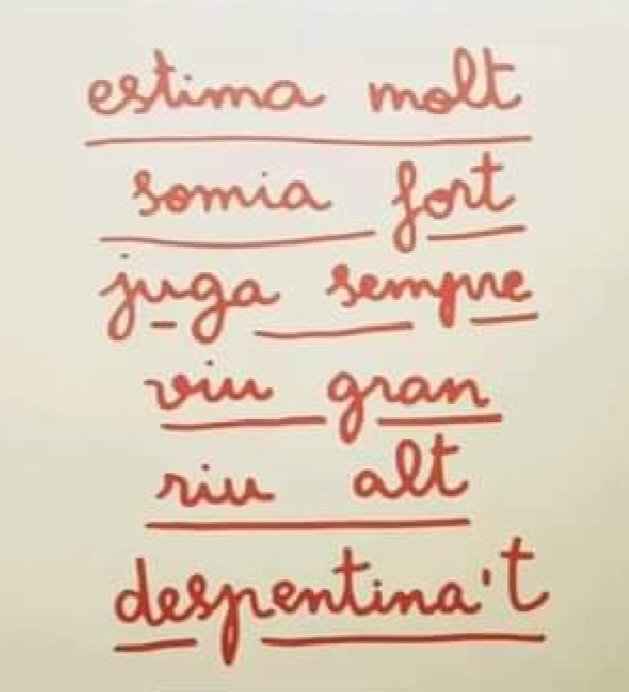 estima molt
somia fort
juga sempre
viu gran
riu alt
despentina't